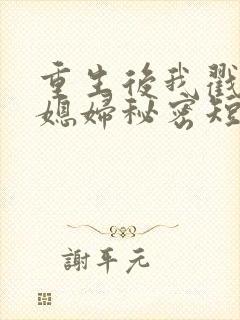 重生後我戳
媳婦秘密短
謝平元